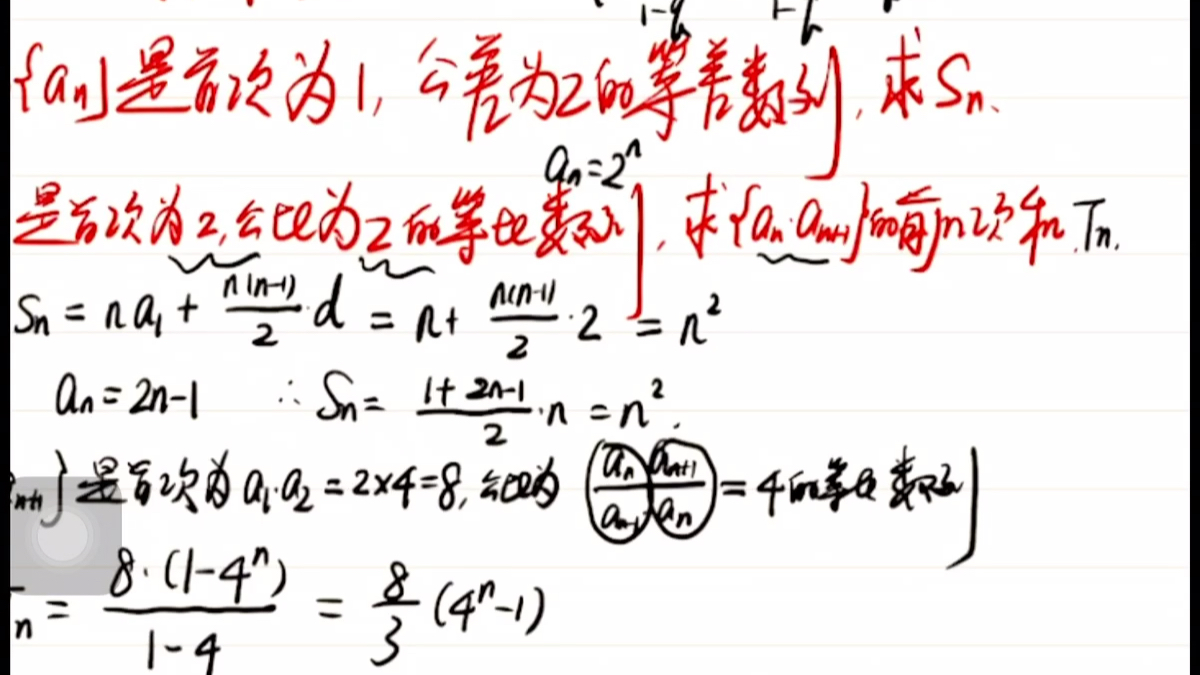 1-q 1-q
{an}是首次为1, 公差为2的等差数列, 求Sn.
an=2^n
是首次为2,公比为2的等比数列, 求{an·an+1}的前n次和Tn.
Sn = na1 + n(n-1)/2 · d = n + n(n-1)/2 · 2 = n²
an = 2n-1 ∴ Sn = (1+2n-1)/2 · n = n².
n+1}是首次为a1·a2=2×4=8, 公比为 (an/an-1)(an+1/an) = 4的等比数列
n = 8·(1-4^n)/(1-4) = 8/3 (4^n-1)